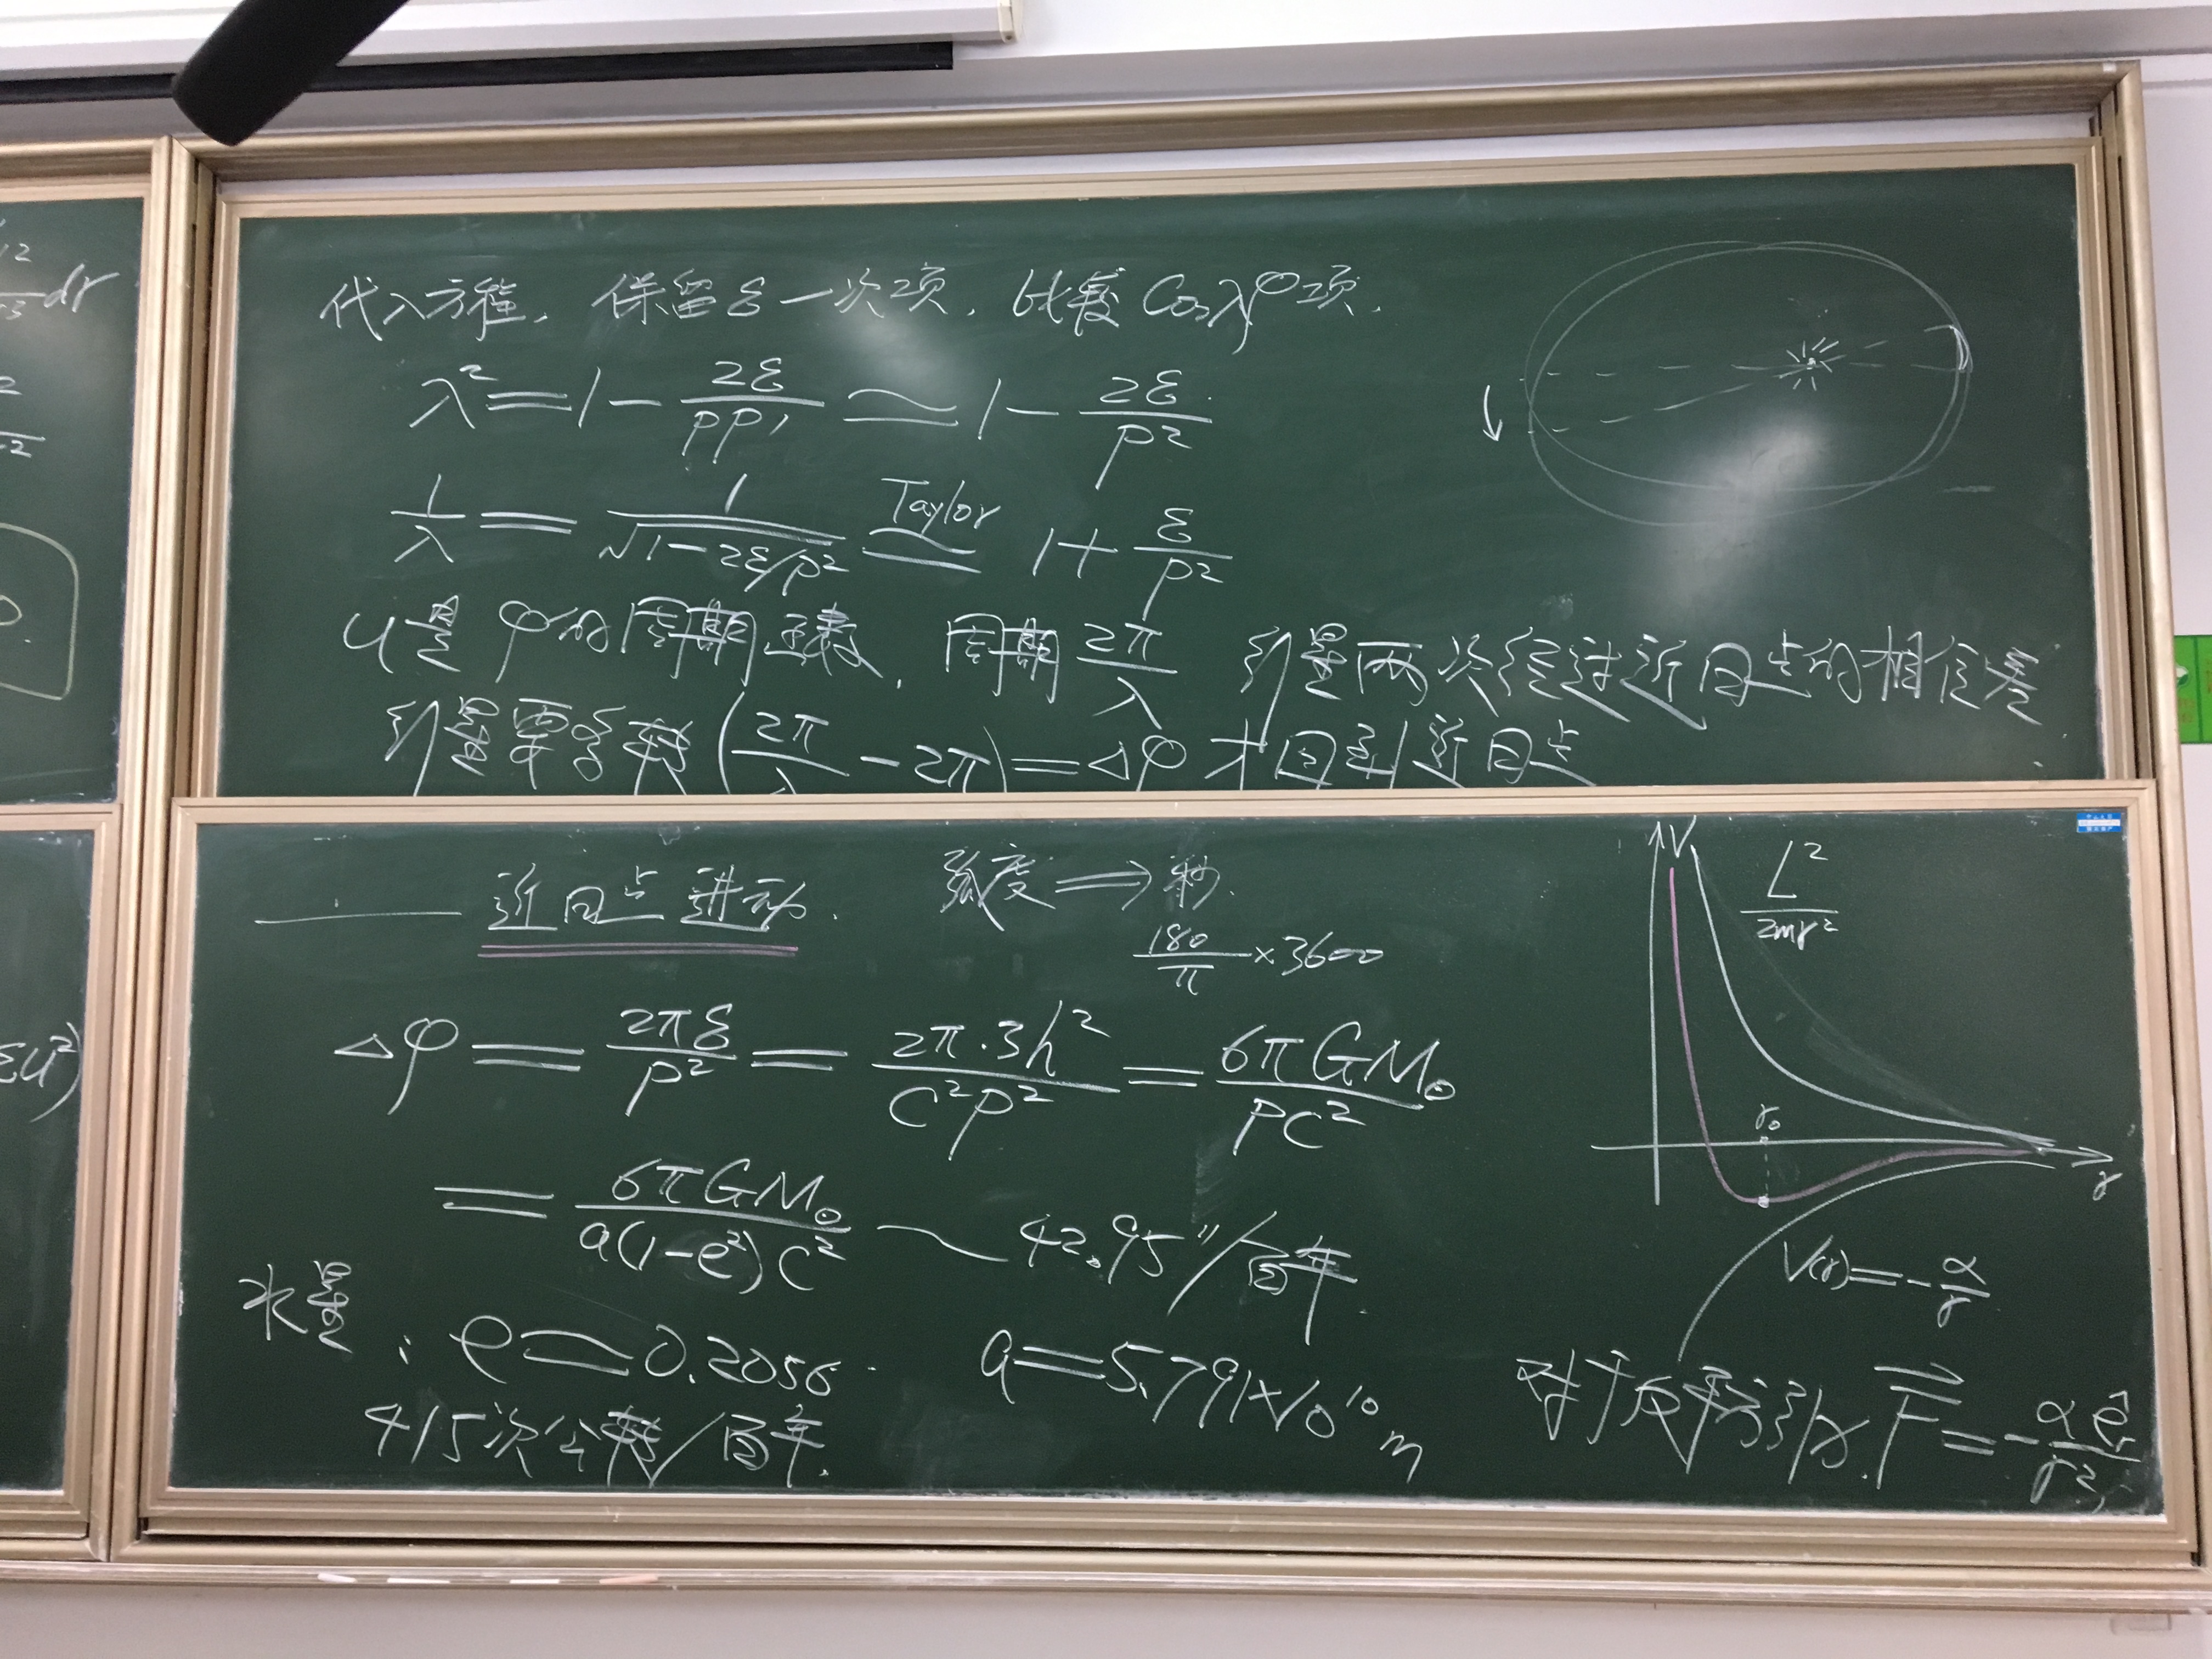 代入方程. 保留ε一次项. 比较 Cosλφ项.
λ² = 1 - 2ε/pp' ≃ 1 - 2ε/p²
1/λ = 1/√1-2ε/p² ≃ 1 + ε/p²
Taylor
u是φ的周期函数. 周期 2π/λ 行星两次经过近日点的相位差
行星要多转 (2π/λ - 2π) = Δφ 才回到近日点
—— 近日点进动. 弧度 ⟹ 秒.
180/π × 3600
Δφ = 2πε/p² = 2π·3h²/C²p² = 6πGM₀/pC²
= 6πGM₀/a(1-e²)C² ~ 42.95″/百年.
水星: e ≃ 0.2056. a = 5.791×10¹⁰ m
415次公转/百年.
V
L²/2mr²
r₀
r
V(r) = -α/r
对于反平方引力. F⃗ = -α e⃗r/r²,
dr
εu²)